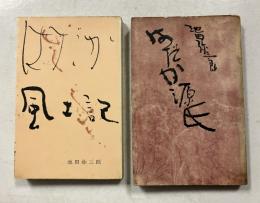 はだか
風土記
池田弥三郎
池田弥三郎
はだか源氏